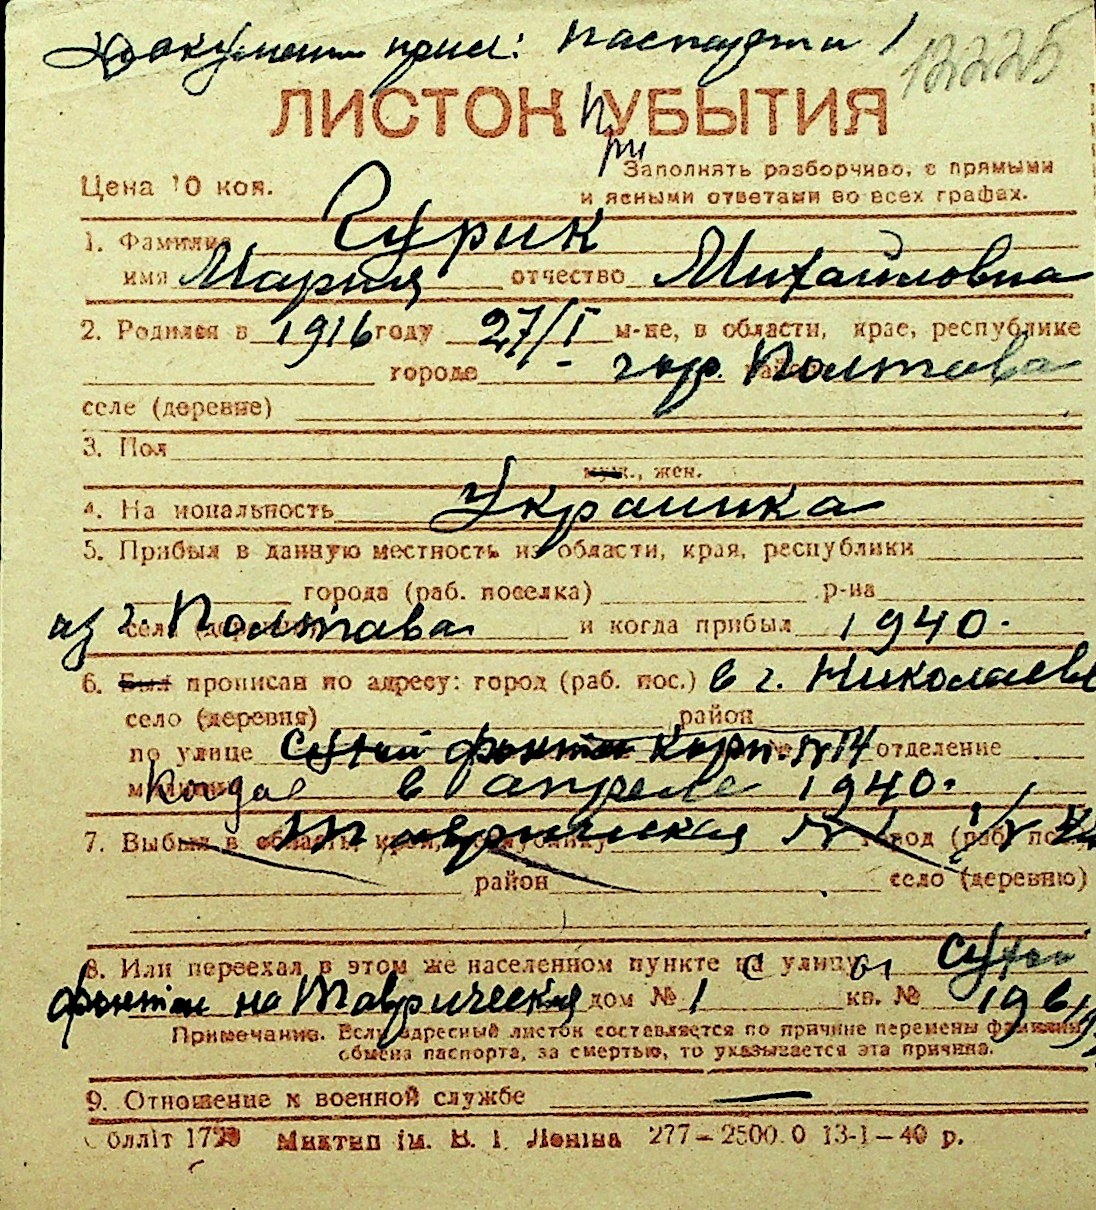 Документ прил: паспорт 1
12225
ЛИСТОК УБЫТИЯ
при
Цена 10 коп.
Заполнять разборчиво, с прямыми
и ясными ответами во всех графах.
1. Фамилия Сурик
имя Мария отчество Михайловна
2. Родился в 1916 году 27/I м-це, в области, крае, республике
городе гор. Полтава
селе (деревне)
3. Пол
муж., жен.
4. Национальность Украинка
5. Прибыл в данную местность из области, края, республики
города (раб. поселка) р-на
из г. Полтава и когда прибыл 1940.
6. Был прописан по адресу: город (раб. пос.) в г. Николаеве
село (деревня) район
по улице сухой фонтан корп. № 14 отделение
когда в апреле 1940.
7. Выбыл в область, край, республику Таврическая № 1 город (раб. пос.)
район село (деревню)
8. Или переехал в этом же населенном пункте на улицу сухой
фонтан на Таврическая дом № 1 кв. №
Примечание. Если адресный листок составляется по причине перемены фамилии,
обмена паспорта, за смертью, то указывается эта причина.
9. Отношение к военной службе —
Миктип ім. В. І. Леніна 277–2500.0 13-1–40 р.